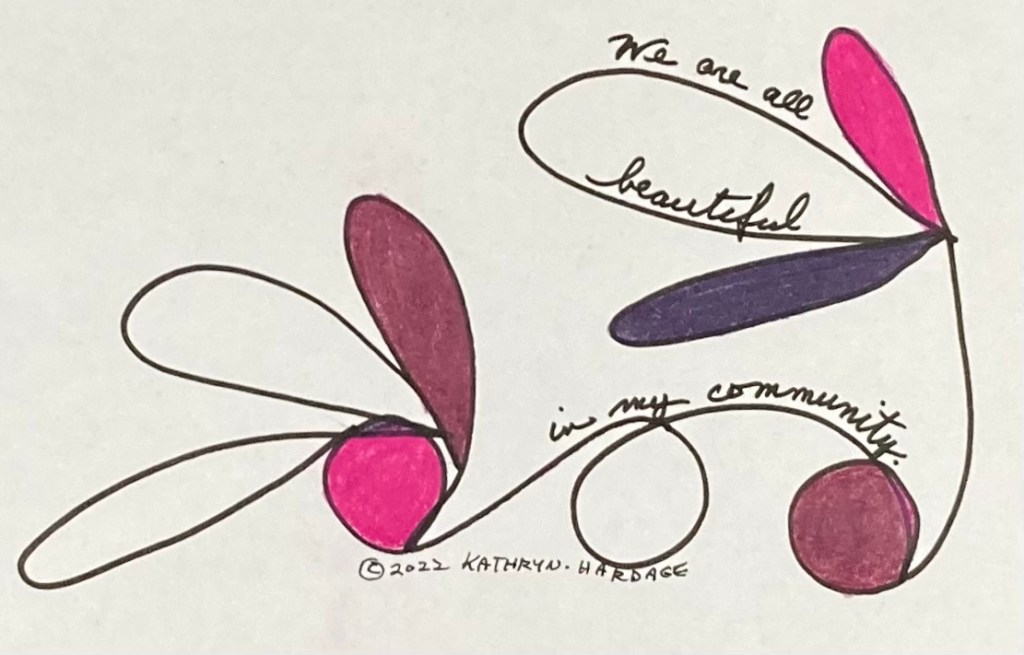 We are all
beautiful
in my community.
© 2022 KATHRYN · HARDAGE